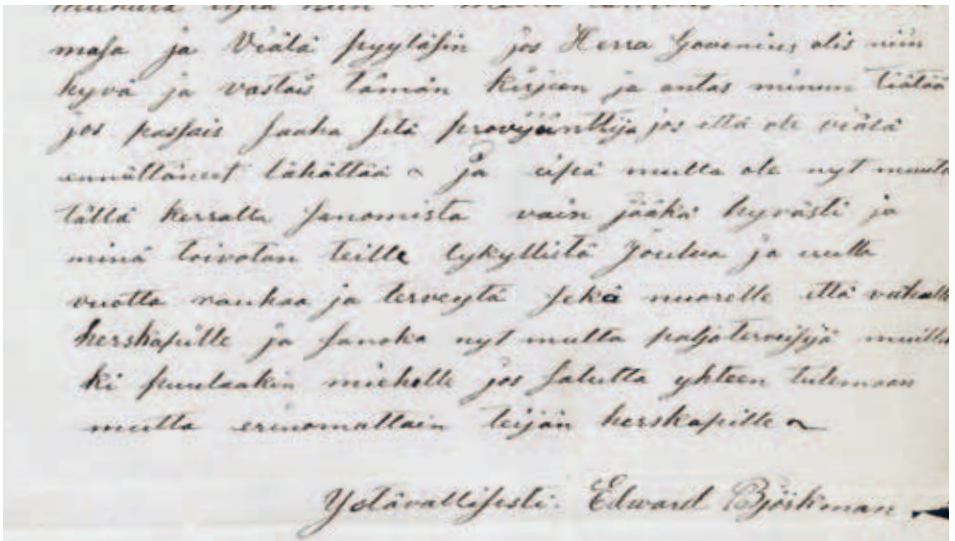 masa ja Viälä pyytäsin jos Herra Govenius olis niin
hyvä ja vastais tämän kirjeen ja antas minun tiätää
jos passais saaha sitä provijänttijä jos että ole viälä
ennättäneet lähättää ja eipä mulla ole nyt muuta
tällä kerralla sanomista vain jääkä hyvästi ja
minä toivotan teille lykyllistä Joulua ja uutta
vuotta rauhaa ja terveytä sekä nuorelle että vahalle
herskapille ja sanoka nyt multa paljo terveisijä muille
ki puulaakin miehelle jos satutta yhteen tulemaan
mutta erinomattain teijän herskapille
Ystävällisesti. Edward Björkman